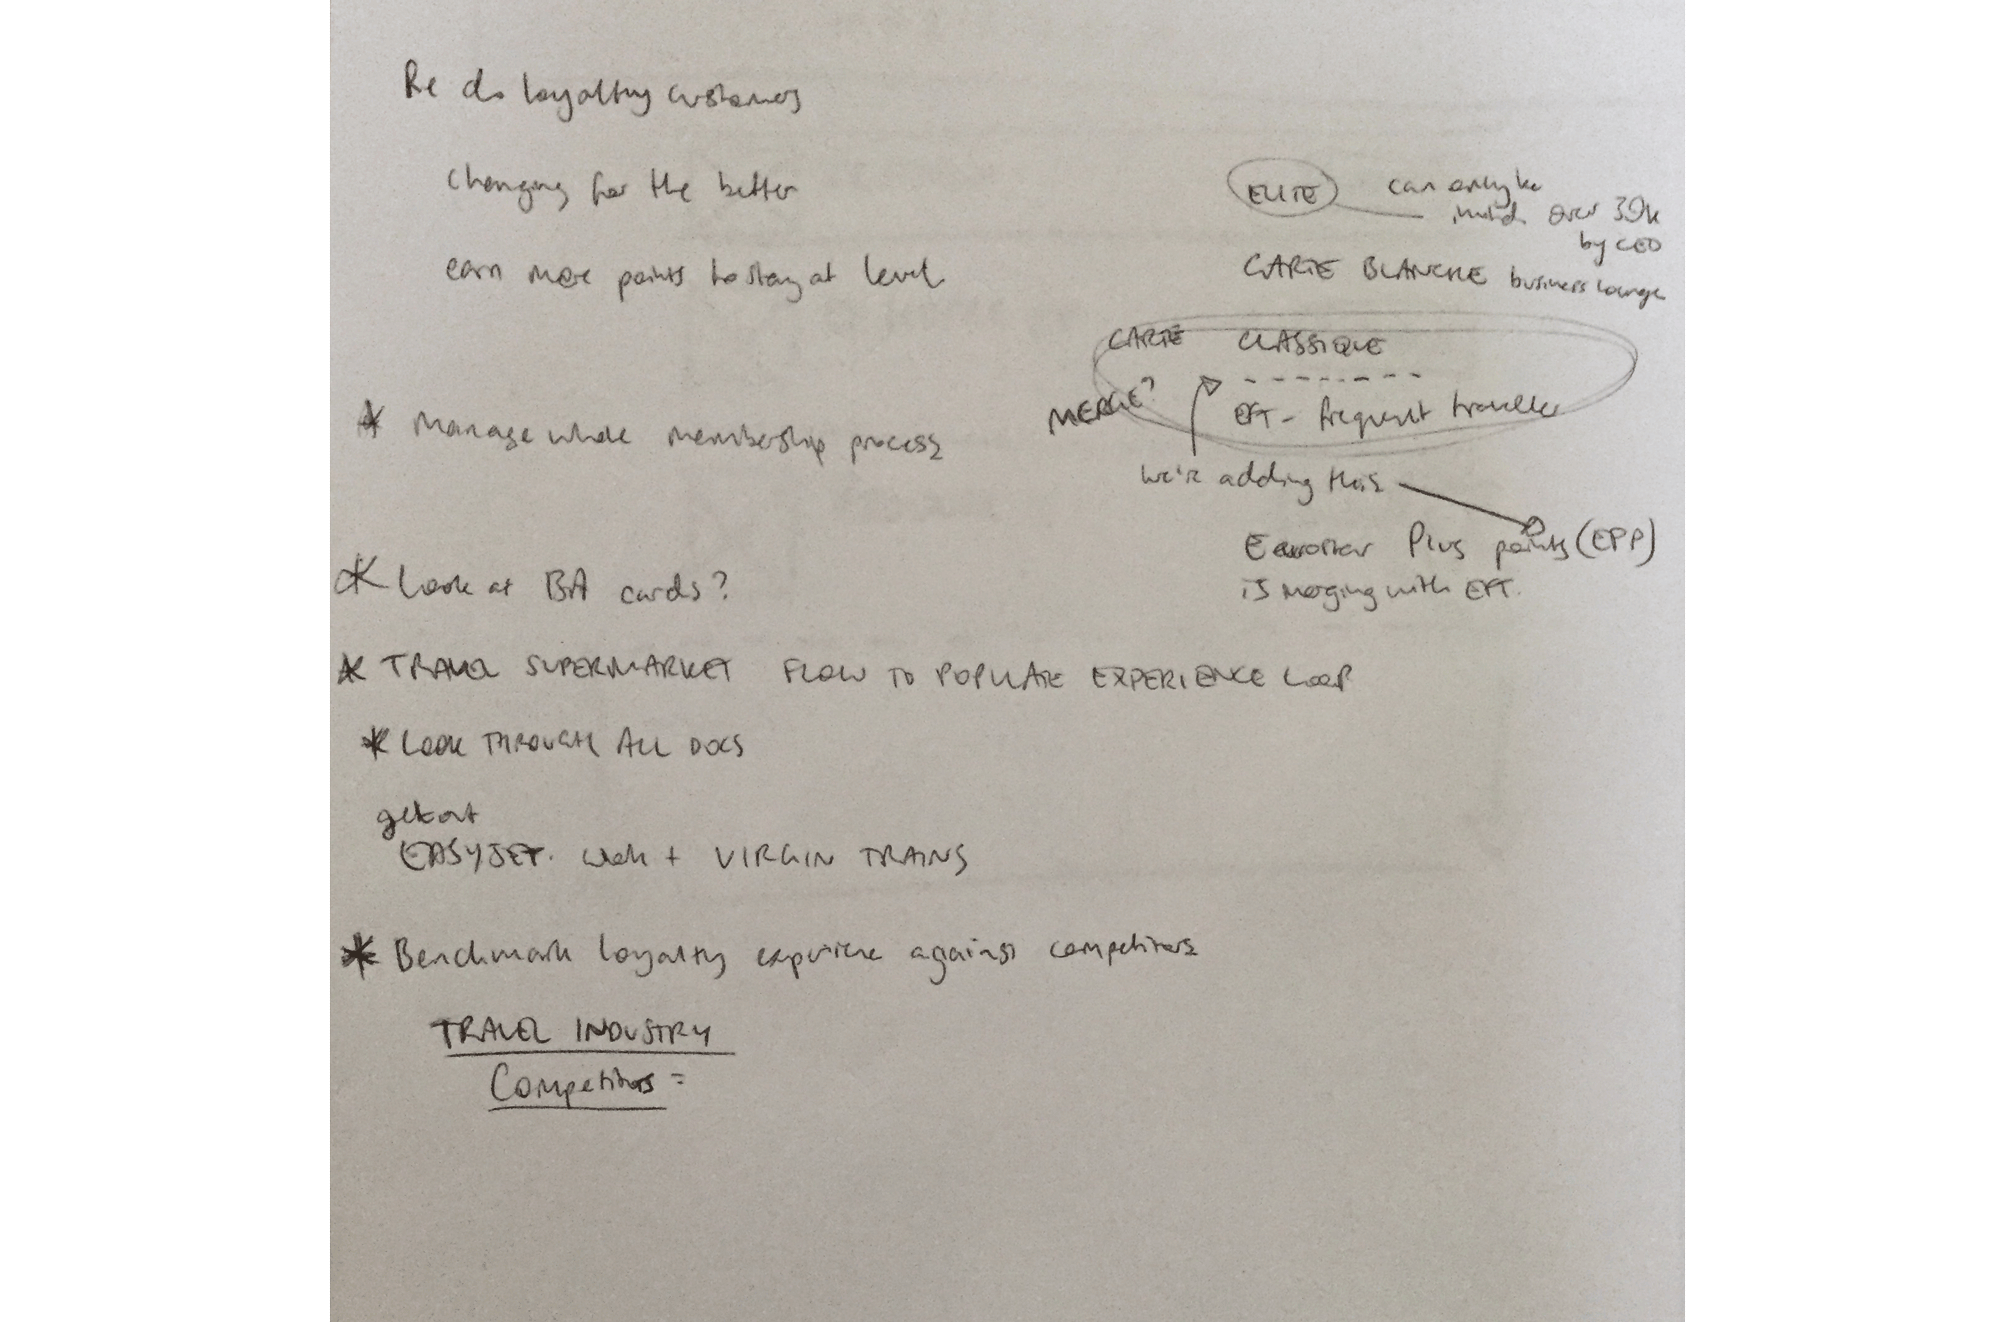 Re do loyalty customers
changing for the better
earn more points to stay at level
* Manage whole membership process
* Look at BA cards?
* TRAVEL SUPERMARKET FLOW TO POPULATE EXPERIENCE LOOP
* LOOK THROUGH ALL DOCS
get out
EASYJET. work + VIRGIN TRAINS
* Benchmark loyalty experience against competitors
TRAVEL INDUSTRY
Competitors =
ELITE can only be
over 30k
by CEO
CARTE BLANCHE business lounge
CARTE CLASSIQUE
MERGE?
EFT - frequent traveller
we're adding this
Eurostar Plus points (EPP)
is merging with EFT.